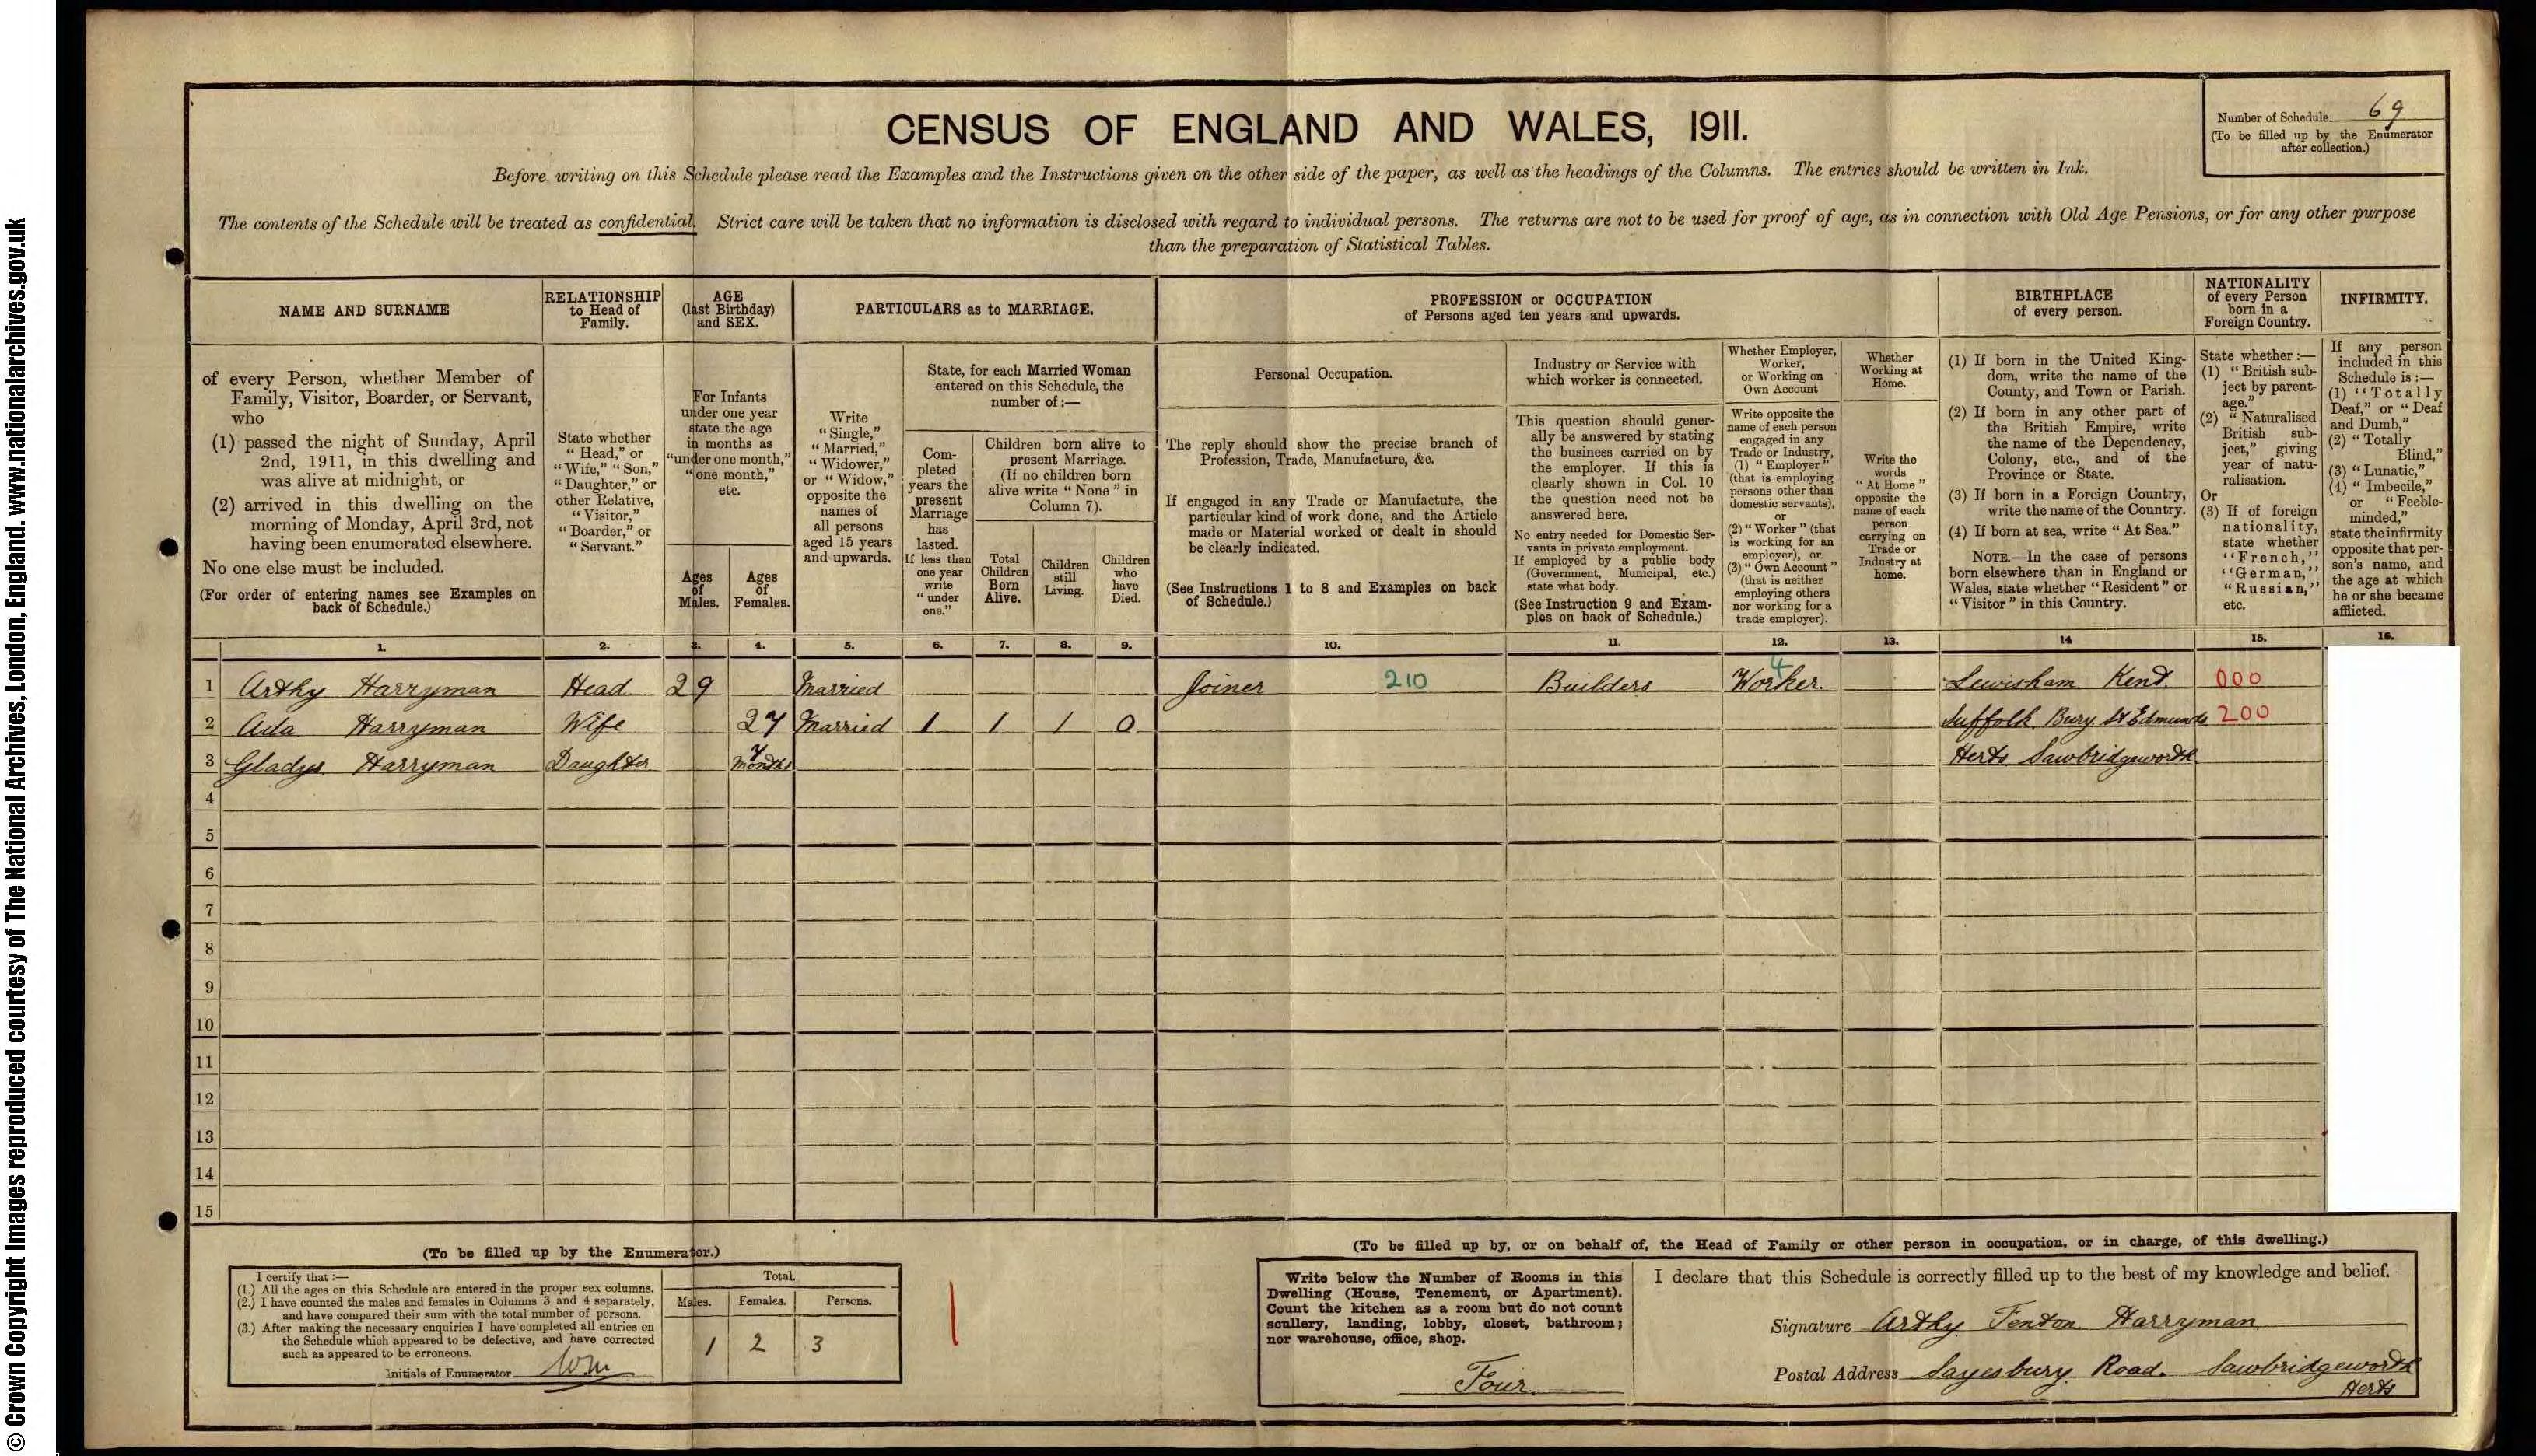 © Crown Copyright Images reproduced courtesy of The National Archives, London, England. www.nationalarchives.gov.uk
CENSUS OF ENGLAND AND WALES, 1911.
Number of Schedule 69
(To be filled up by the Enumerator
after collection.)
Before writing on this Schedule please read the Examples and the Instructions given on the other side of the paper, as well as the headings of the Columns. The entries should be written in Ink.
The contents of the Schedule will be treated as confidential. Strict care will be taken that no information is disclosed with regard to individual persons. The returns are not to be used for proof of age, as in connection with Old Age Pensions, or for any other purpose
than the preparation of Statistical Tables.
NAME AND SURNAME
of every Person, whether Member of
Family, Visitor, Boarder, or Servant,
who
(1) passed the night of Sunday, April
2nd, 1911, in this dwelling and
was alive at midnight, or
(2) arrived in this dwelling on the
morning of Monday, April 3rd, not
having been enumerated elsewhere.
No one else must be included.
(For order of entering names see Examples on
back of Schedule.)
RELATIONSHIP
to Head of
Family.
State whether
"Head," or
"Wife," "Son,"
"Daughter," or
other Relative,
"Visitor,"
"Boarder," or
"Servant."
AGE
(last Birthday)
and SEX.
For Infants
under one year
state the age
in months as
"under one month,"
"one month,"
etc.
Ages
of
Males.
Ages
of
Females.
PARTICULARS as to MARRIAGE.
Write
"Single,"
"Married,"
"Widower,"
or "Widow,"
opposite the
names of
all persons
aged 15 years
and upwards.
State, for each Married Woman
entered on this Schedule, the
number of :—
Com-
pleted
years the
present
Marriage
has
lasted.
If less than
one year
write
"under
one."
Children born alive to
present Marriage.
(If no children born
alive write "None" in
Column 7).
Total
Children
Born
Alive.
Children
still
Living.
Children
who
have
Died.
PROFESSION or OCCUPATION
of Persons aged ten years and upwards.
Personal Occupation.
The reply should show the precise branch of
Profession, Trade, Manufacture, &c.
If engaged in any Trade or Manufacture, the
particular kind of work done, and the Article
made or Material worked or dealt in should
be clearly indicated.
(See Instructions 1 to 8 and Examples on back
of Schedule.)
Industry or Service with
which worker is connected.
This question should gener-
ally be answered by stating
the business carried on by
the employer. If this is
clearly shown in Col. 10
the question need not be
answered here.
No entry needed for Domestic Ser-
vants in private employment.
If employed by a public body
(Government, Municipal, etc.)
state what body.
(See Instruction 9 and Exam-
ples on back of Schedule.)
Whether Employer,
Worker,
or Working on
Own Account
Write opposite the
name of each person
engaged in any
Trade or Industry,
(1) "Employer"
(that is employing
persons other than
domestic servants),
or
(2) "Worker" (that
is working for an
employer), or
(3) "Own Account"
(that is neither
employing others
nor working for a
trade employer).
Whether
Working at
Home.
Write the
words
"At Home"
opposite the
name of each
person
carrying on
Trade or
Industry at
home.
BIRTHPLACE
of every person.
(1) If born in the United King-
dom, write the name of the
County, and Town or Parish.
(2) If born in any other part of
the British Empire, write
the name of the Dependency,
Colony, etc., and of the
Province or State.
(3) If born in a Foreign Country,
write the name of the Country.
(4) If born at sea, write "At Sea."
NOTE.—In the case of persons
born elsewhere than in England or
Wales, state whether "Resident" or
"Visitor" in this Country.
NATIONALITY
of every Person
born in a
Foreign Country.
State whether :—
(1) "British sub-
ject by parent-
age."
(2) "Naturalised
British sub-
ject," giving
year of natu-
ralisation.
Or
(3) If of foreign
nationality,
state whether
"French,"
"German,"
"Russian,"
etc.
INFIRMITY.
If any person
included in this
Schedule is :—
(1) "Totally
Deaf," or "Deaf
and Dumb,"
(2) "Totally
Blind,"
(3) "Lunatic,"
(4) "Imbecile,"
or "Feeble-
minded,"
state the infirmity
opposite that per-
son's name, and
the age at which
he or she became
afflicted.
1. 2. 3. 4. 5. 6. 7. 8. 9. 10. 11. 12. 13. 14 15. 16.
1 Arthy Harryman Head 29 Married Joiner 210 Builders Worker 4 Lewisham Kent 000
2 Ada Harryman Wife 27 Married 1 1 1 0 Suffolk Bury St Edmunds 200
3 Gladys Harryman Daughter 7 months Herts Sawbridgeworth
4
5
6
7
8
9
10
11
12
13
14
15
(To be filled up by the Enumerator.)
I certify that :—
(1.) All the ages on this Schedule are entered in the proper sex columns.
(2.) I have counted the males and females in Columns 3 and 4 separately,
and have compared their sum with the total number of persons.
(3.) After making the necessary enquiries I have completed all entries on
the Schedule which appeared to be defective, and have corrected
such as appeared to be erroneous.
Initials of Enumerator
Total.
Males. Females. Persons.
1 2 3
(To be filled up by, or on behalf of, the Head of Family or other person in occupation, or in charge, of this dwelling.)
Write below the Number of Rooms in this
Dwelling (House, Tenement, or Apartment).
Count the kitchen as a room but do not count
scullery, landing, lobby, closet, bathroom;
nor warehouse, office, shop.
Four.
I declare that this Schedule is correctly filled up to the best of my knowledge and belief.
Signature Arthy Fenton Harryman
Postal Address Sayesbury Road. Sawbridgeworth
Herts